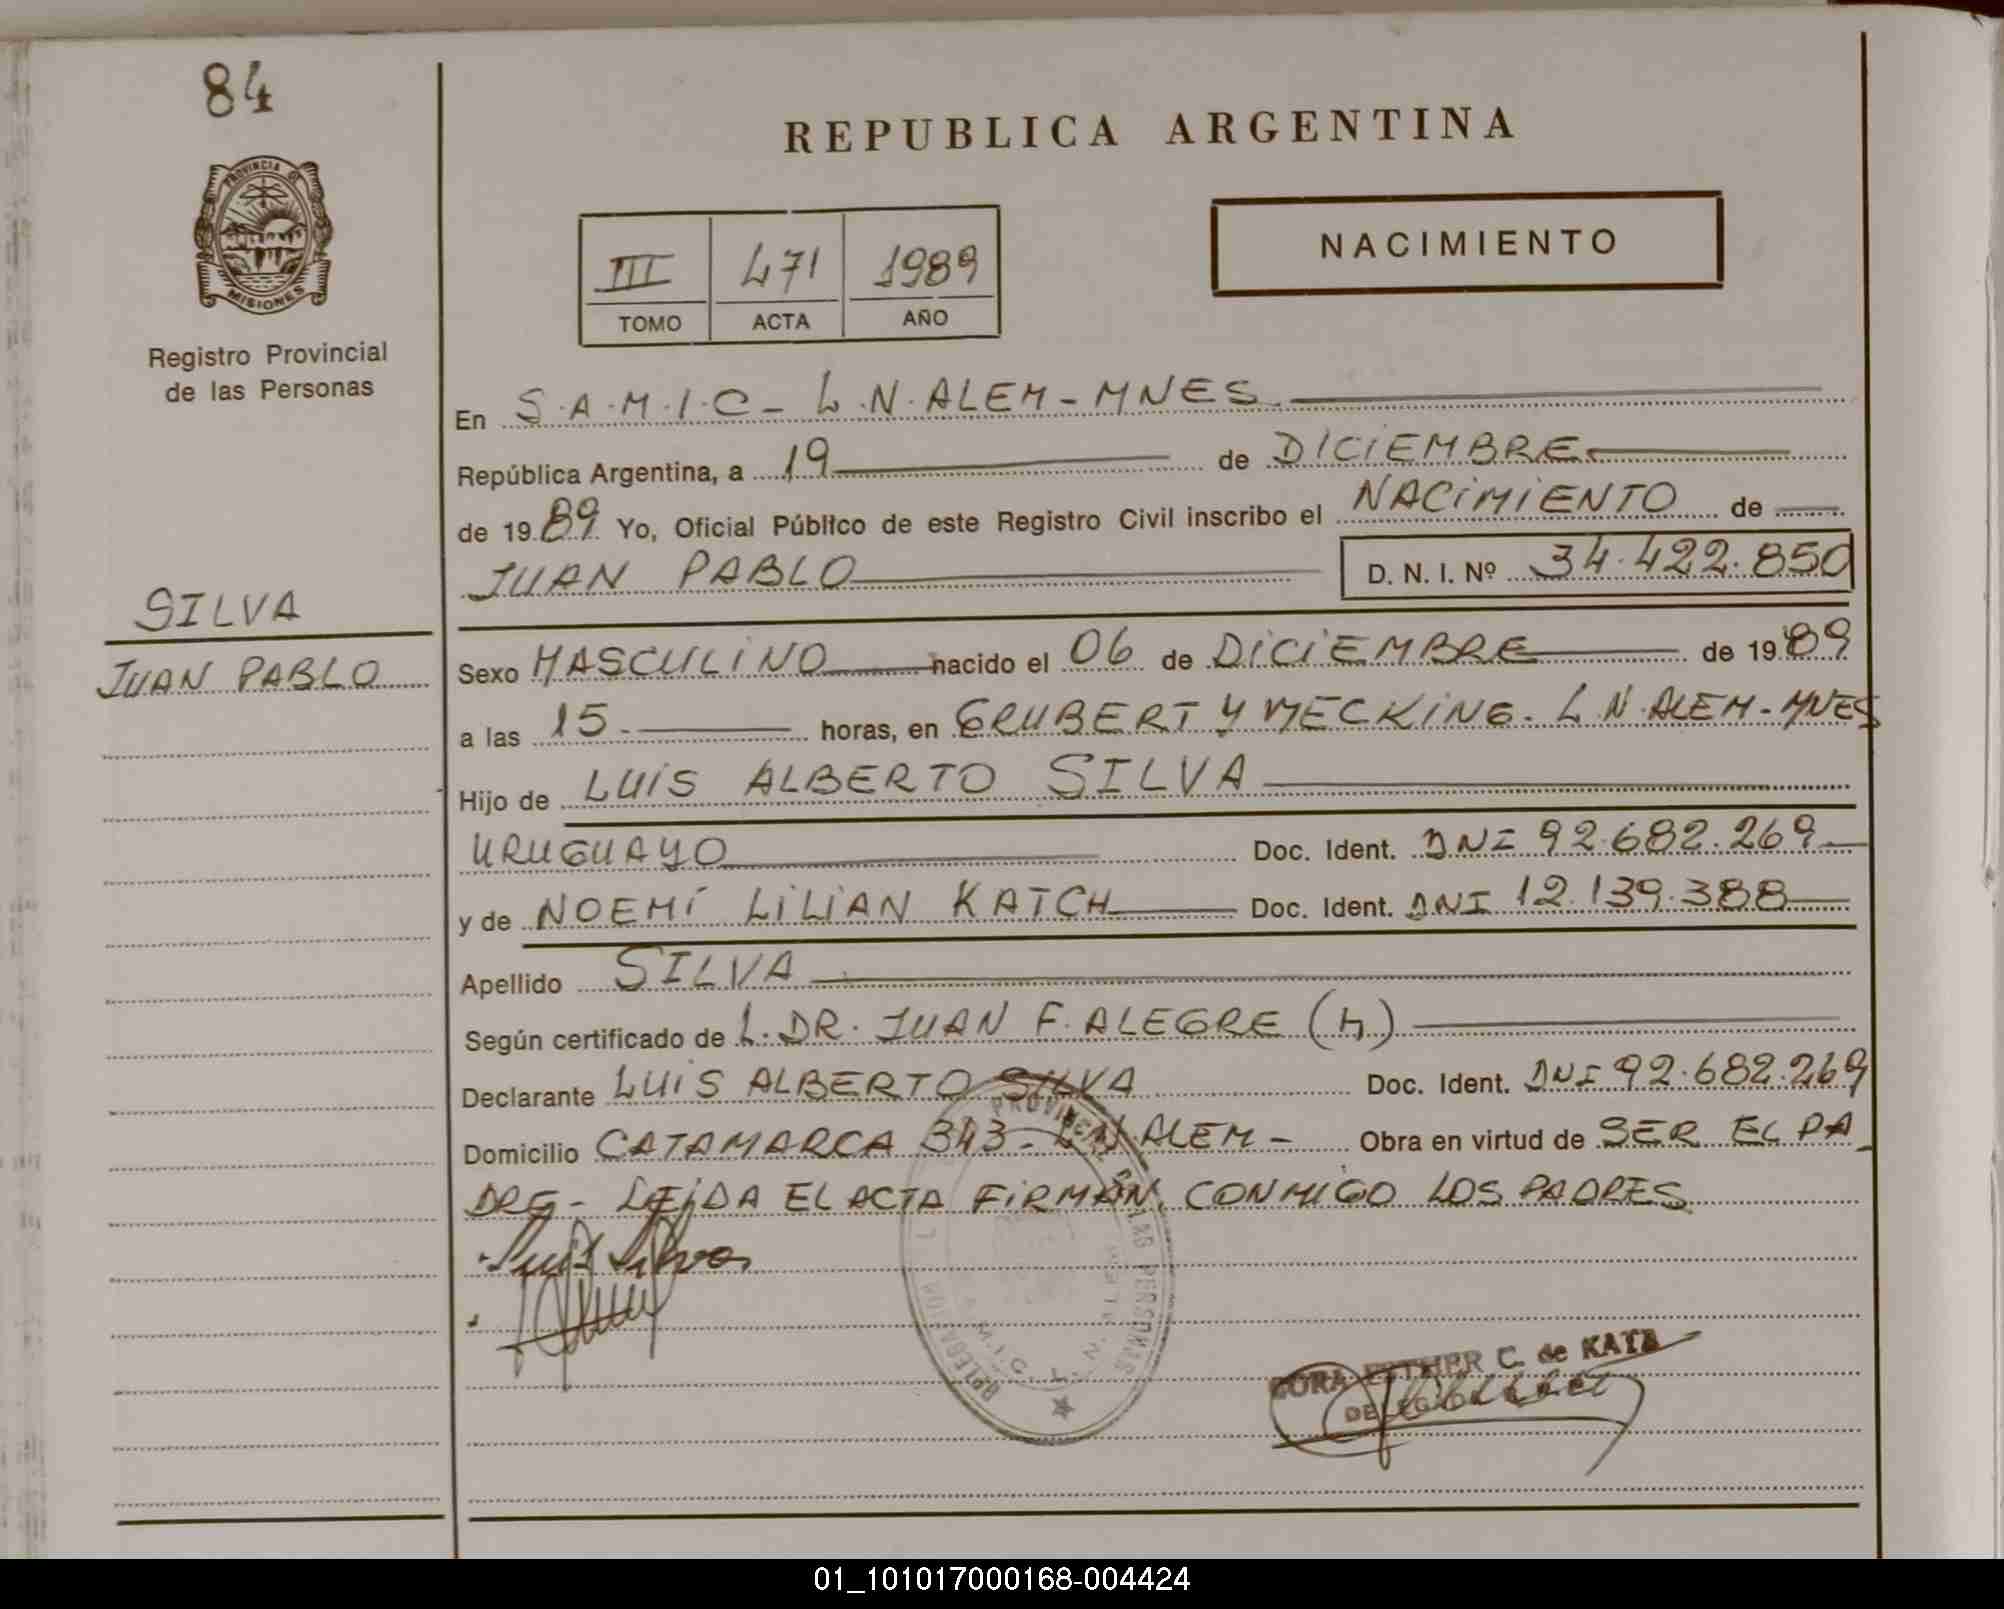 84
PROVINCIA DE
MISIONES
Registro Provincial
de las Personas
SILVA
JUAN PABLO
REPUBLICA ARGENTINA
III 471 1989
TOMO ACTA AÑO
NACIMIENTO
En S.A.M.I.C - L.N.ALEM - MNES.
República Argentina, a 19 de DICIEMBRE
de 1989 Yo, Oficial Público de este Registro Civil inscribo el NACIMIENTO de
JUAN PABLO D. N. I. Nº 34.422.850
Sexo MASCULINO nacido el 06 de DICIEMBRE de 1989
a las 15 horas, en GRUBERT Y MECKING. L.N.ALEM - MNES
Hijo de LUIS ALBERTO SILVA
URUGUAYO Doc. Ident. DNI 92.682.269
y de NOEMÍ LILIAN KATCH Doc. Ident. DNI 12.139.388
Apellido SILVA
Según certificado de L. DR. JUAN F. ALEGRE (h)
Declarante LUIS ALBERTO SILVA Doc. Ident. DNI 92.682.269
Domicilio CATAMARCA 343 - L.N.ALEM - Obra en virtud de SER EL PA_
DRE - LEIDA EL ACTA FIRMAN CONMIGO LOS PADRES
Luis Silva
PROVINCIAL DE LAS PERSONAS
DELEGACION
L.N. ALEM
ESTHER C. de KATZ
DELEGADA
01_101017000168-004424